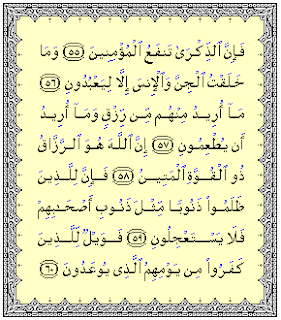 فَإِنَّ ٱلذِّكۡرَىٰ تَنفَعُ ٱلۡمُؤۡمِنِينَ ٥٥ وَمَا
خَلَقۡتُ ٱلۡجِنَّ وَٱلۡإِنسَ إِلَّا لِيَعۡبُدُونِ ٥٦
مَآ أُرِيدُ مِنۡهُم مِّن رِّزۡقٖ وَمَآ أُرِيدُ
أَن يُطۡعِمُونِ ٥٧ إِنَّ ٱللَّهَ هُوَ ٱلرَّزَّاقُ
ذُو ٱلۡقُوَّةِ ٱلۡمَتِينُ ٥٨ فَإِنَّ لِلَّذِينَ
ظَلَمُواْ ذَنُوبٗا مِّثۡلَ ذَنُوبِ أَصۡحَٰبِهِمۡ
فَلَا يَسۡتَعۡجِلُونِ ٥٩ فَوَيۡلٞ لِّلَّذِينَ
كَفَرُواْ مِن يَوۡمِهِمُ ٱلَّذِي يُوعَدُونَ ٦٠